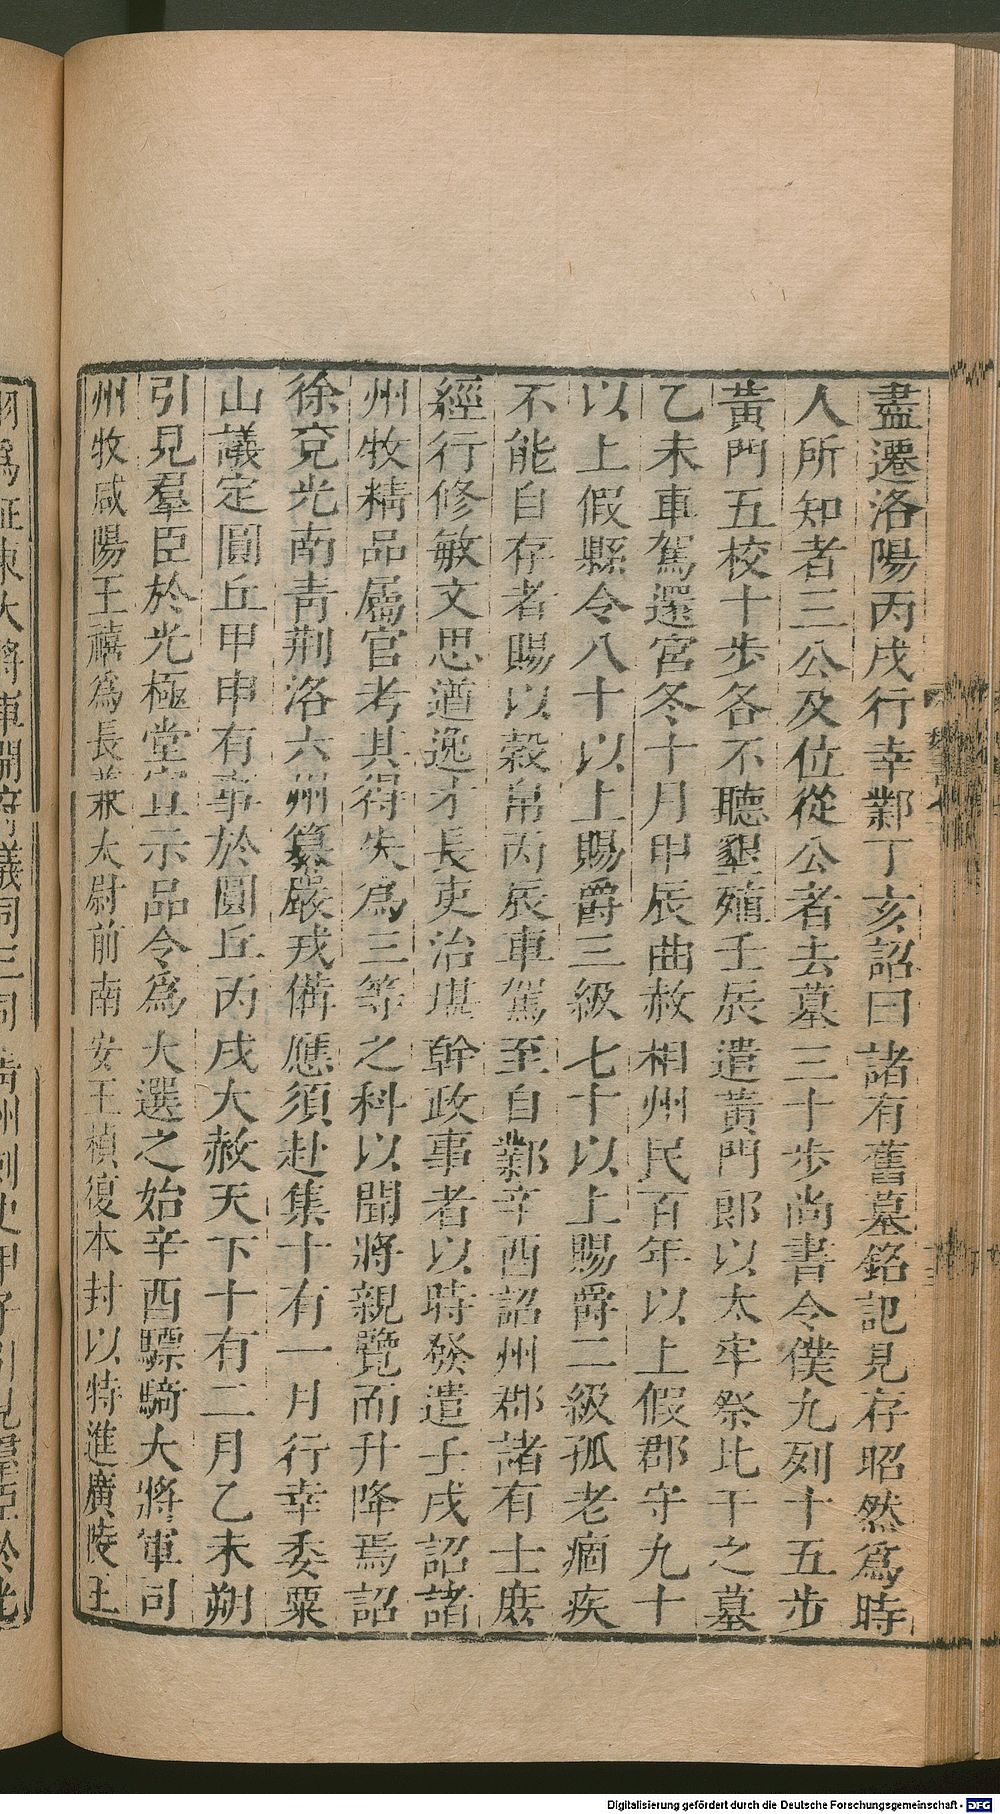 盡遷洛陽丙戌行幸鄴丁亥詔曰諸有舊墓銘記見存昭然爲時
人所知者三公及位從公者去墓三十步尚書令僕九列十五步
黃門五校十步各不聽墾殖壬辰遣黃門郎以太牢祭比干之墓
乙未車駕還宮冬十月甲辰曲赦相州民百年以上假郡守九十
以上假縣令八十以上賜爵三級七十以上賜爵二級孤老痼疾
不能自存者賜以穀帛丙辰車駕至自鄴辛酉詔州郡諸有士庶
經行修敏文思遒逸才長吏治堪幹政事者以時發遣壬戌詔諸
州牧精品屬官考其得失爲三等之科以聞將親覽而升降焉詔
徐兗光南青荆洛六州纂嚴戎備應須赴集十有一月行幸委粟
山議定圓丘甲申有事於圓丘丙戌大赦天下十有二月乙未朔
引見羣臣於光極堂宣示品令爲大選之始辛酉驃騎大將軍司
州牧咸陽王禧爲長兼太尉前南安王楨復本封以特進廣陵王
Digitalisierung gefördert durch die Deutsche Forschungsgemeinschaft - DFG